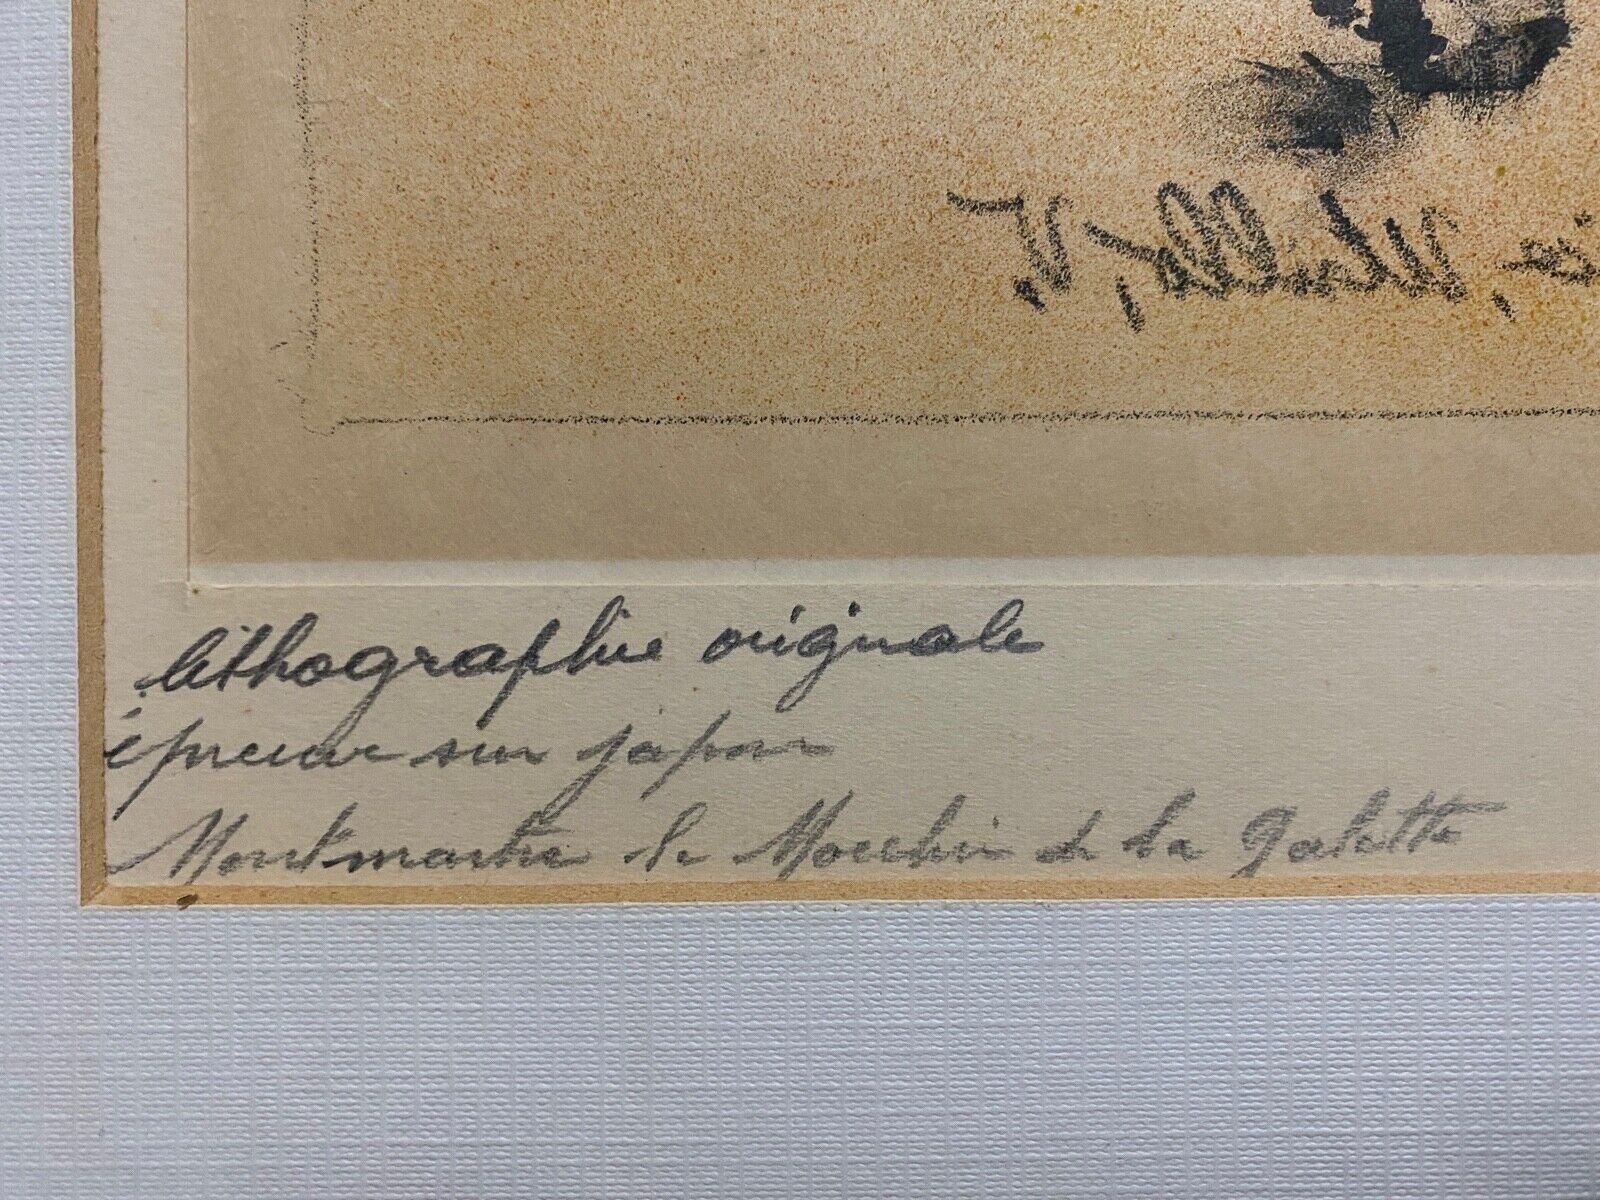 lithographie originale
épreuve sur japon
Montmartre le Moulin de la galette